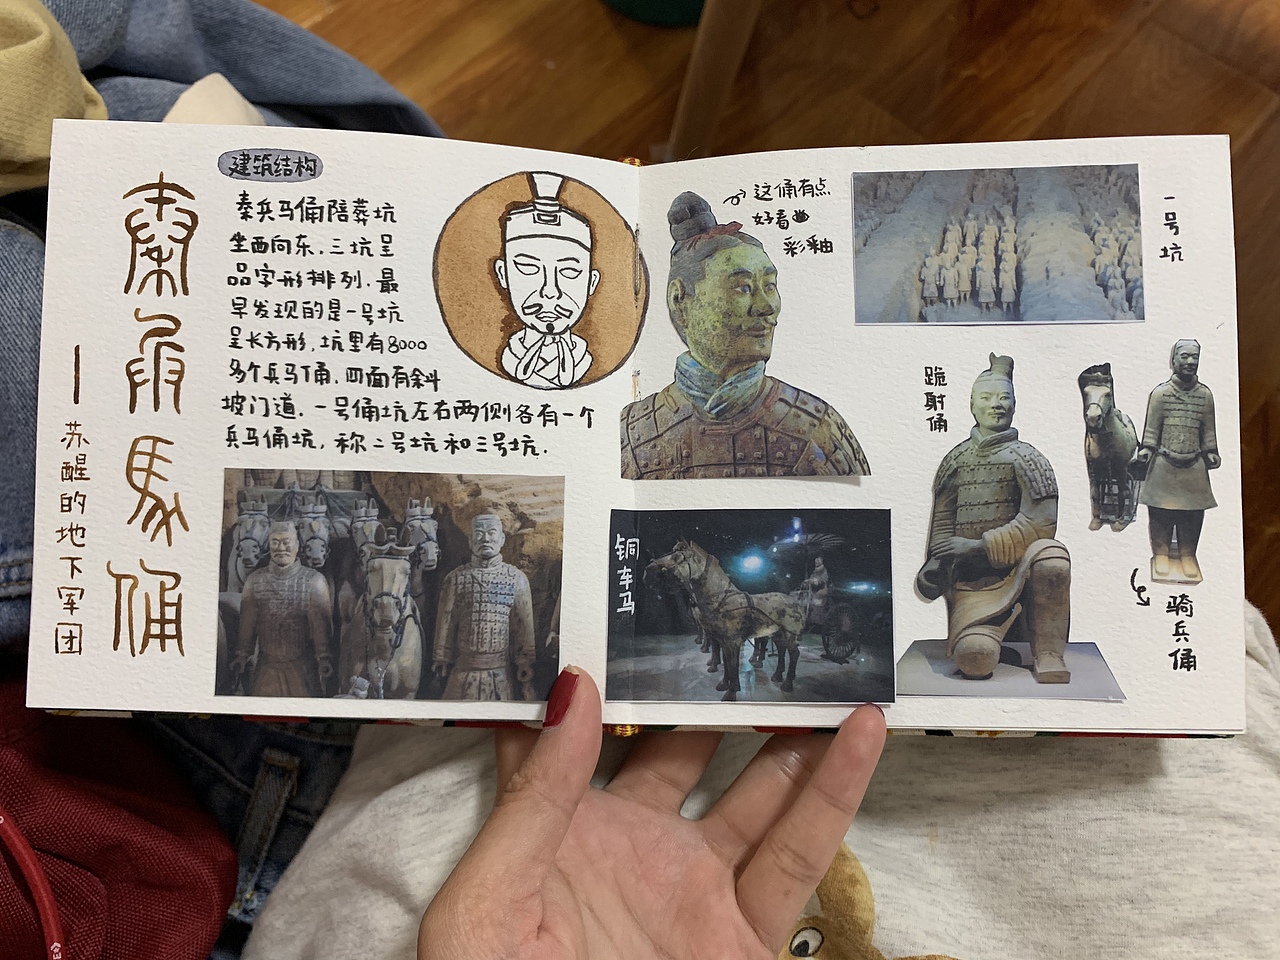 秦兵馬俑
——苏醒的地下军团
建筑结构
秦兵马俑陪葬坑
坐西向东，三坑呈
品字形排列，最
早发现的是一号坑
呈长方形，坑里有8000
多个兵马俑，四面有斜
坡门道，一号俑坑左右两侧各有一个
兵马俑坑，称二号坑和三号坑．
这俑有点
好看
彩釉
一号坑
跪射俑
铜车马
骑兵俑